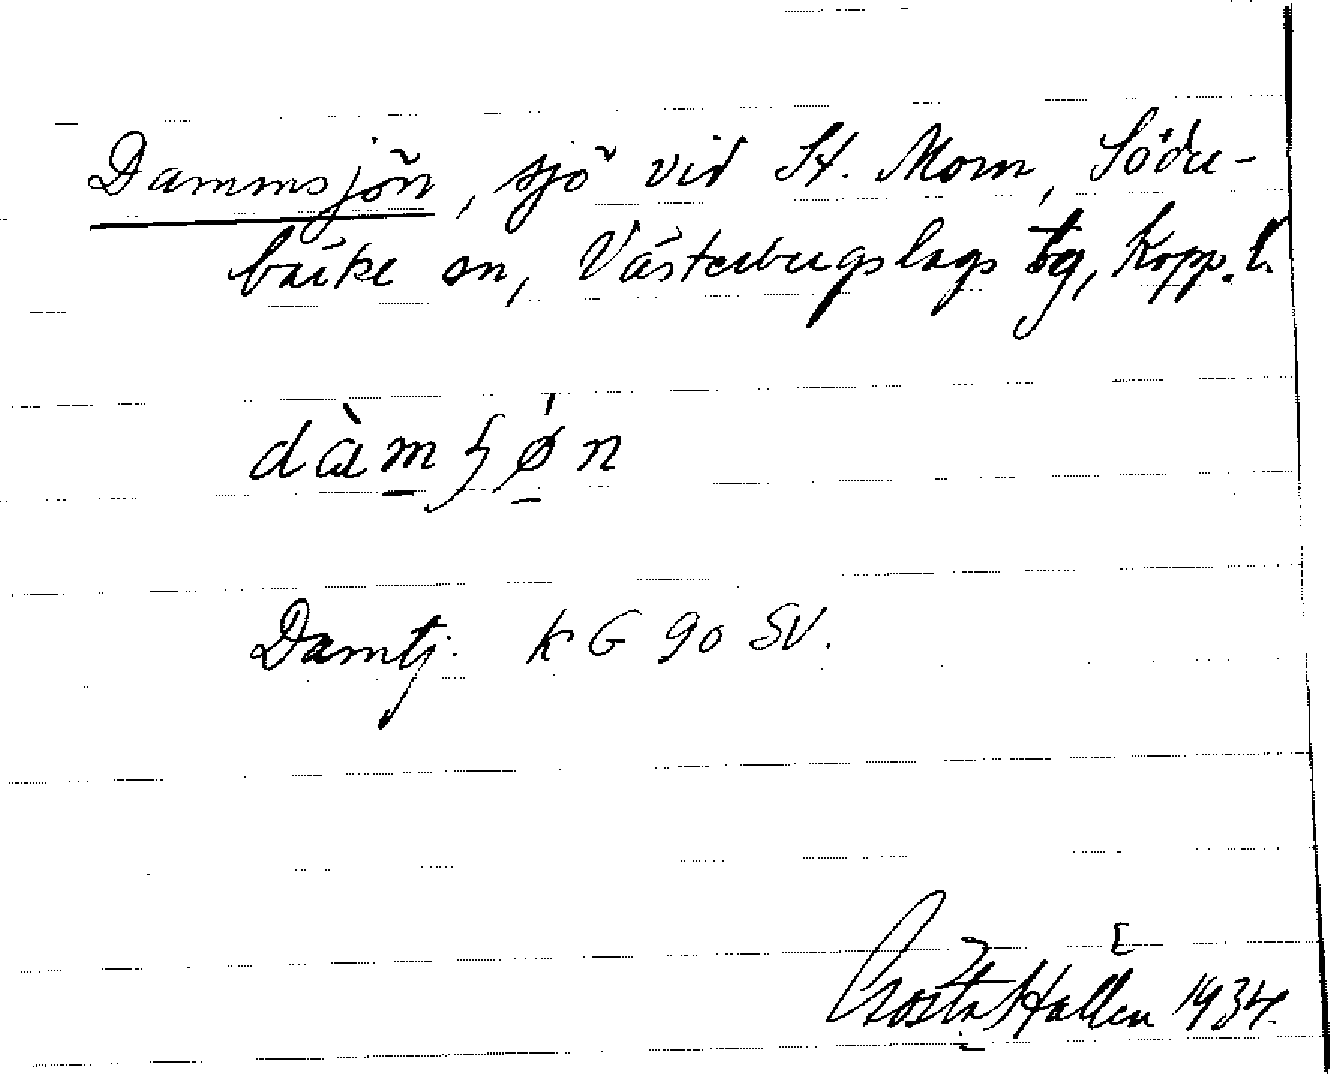 Dammsjön, sjö vid St. Morn, Söder-
bärke sn, Västerbergslags tg, Kopp. l.
dàmʃø̍n
Damtj. KG 90 SV.
Gösta Hallén 1934.